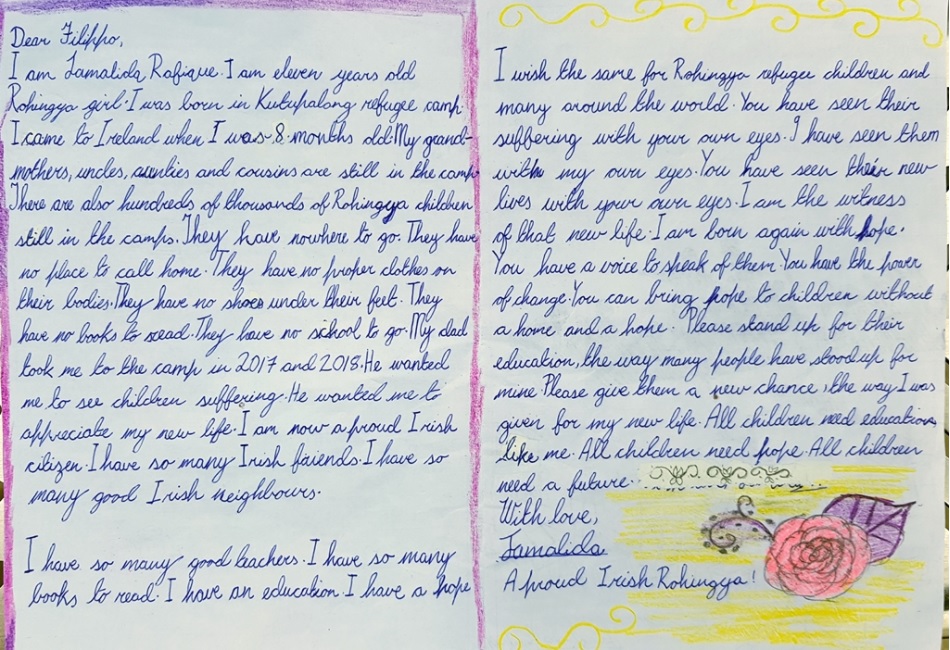 Dear Filippo,
I am Jamalida Rafique. I am eleven years old
Rohingya girl. I was born in Kutupalong refugee camp.
I came to Ireland when I was 8 months old. My grand-
mothers, uncles, aunties and cousins are still in the camp
There are also hundreds of thousands of Rohingya children
still in the camps. They have nowhere to go. They have
no place to call home. They have no proper clothes on
their bodies. They have no shoes under their feet. They
have no books to read. They have no school to go. My dad
took me to the camp in 2017 and 2018. He wanted
me to see children suffering. He wanted me to
appreciate my new life. I am now a proud Irish
citizen. I have so many Irish friends. I have so
many good Irish neighbours.
I have so many good teachers. I have so many
books to read. I have an education. I have a hope
I wish the same for Rohingya refugee children and
many around the world. You have seen their
suffering with your own eyes. I have seen them
with my own eyes. You have seen their new
lives with your own eyes. I am the witness
of that new life. I am born again with hope.
You have a voice to speak of them. You have the power
of change. You can bring hope to children without
a home and a hope. Please stand up for their
education, the way many people have stood up for
mine. Please give them a new chance, the way I was
given for my new life. All children need education,
like me. All children need hope. All children
need a future.
With love,
Jamalida
A proud Irish Rohingya!